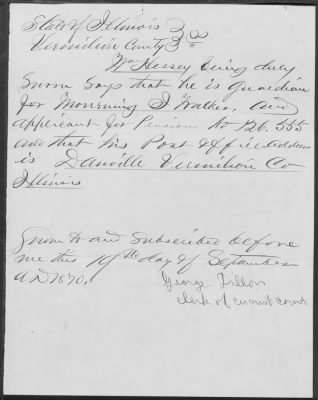 State of Illinois } ss
Vermilion County }
Wm Hessey being duly
Sworn Says that he is guardian
for Mourning J Walker and
applicant for Pension No 126.555
and that his Post Office address
is Danville Vermilion Co
Illinois
Sworn to and Subscribed before
me this 19th day of September
A D 1870.
George Dillon
Clerk of circuit court